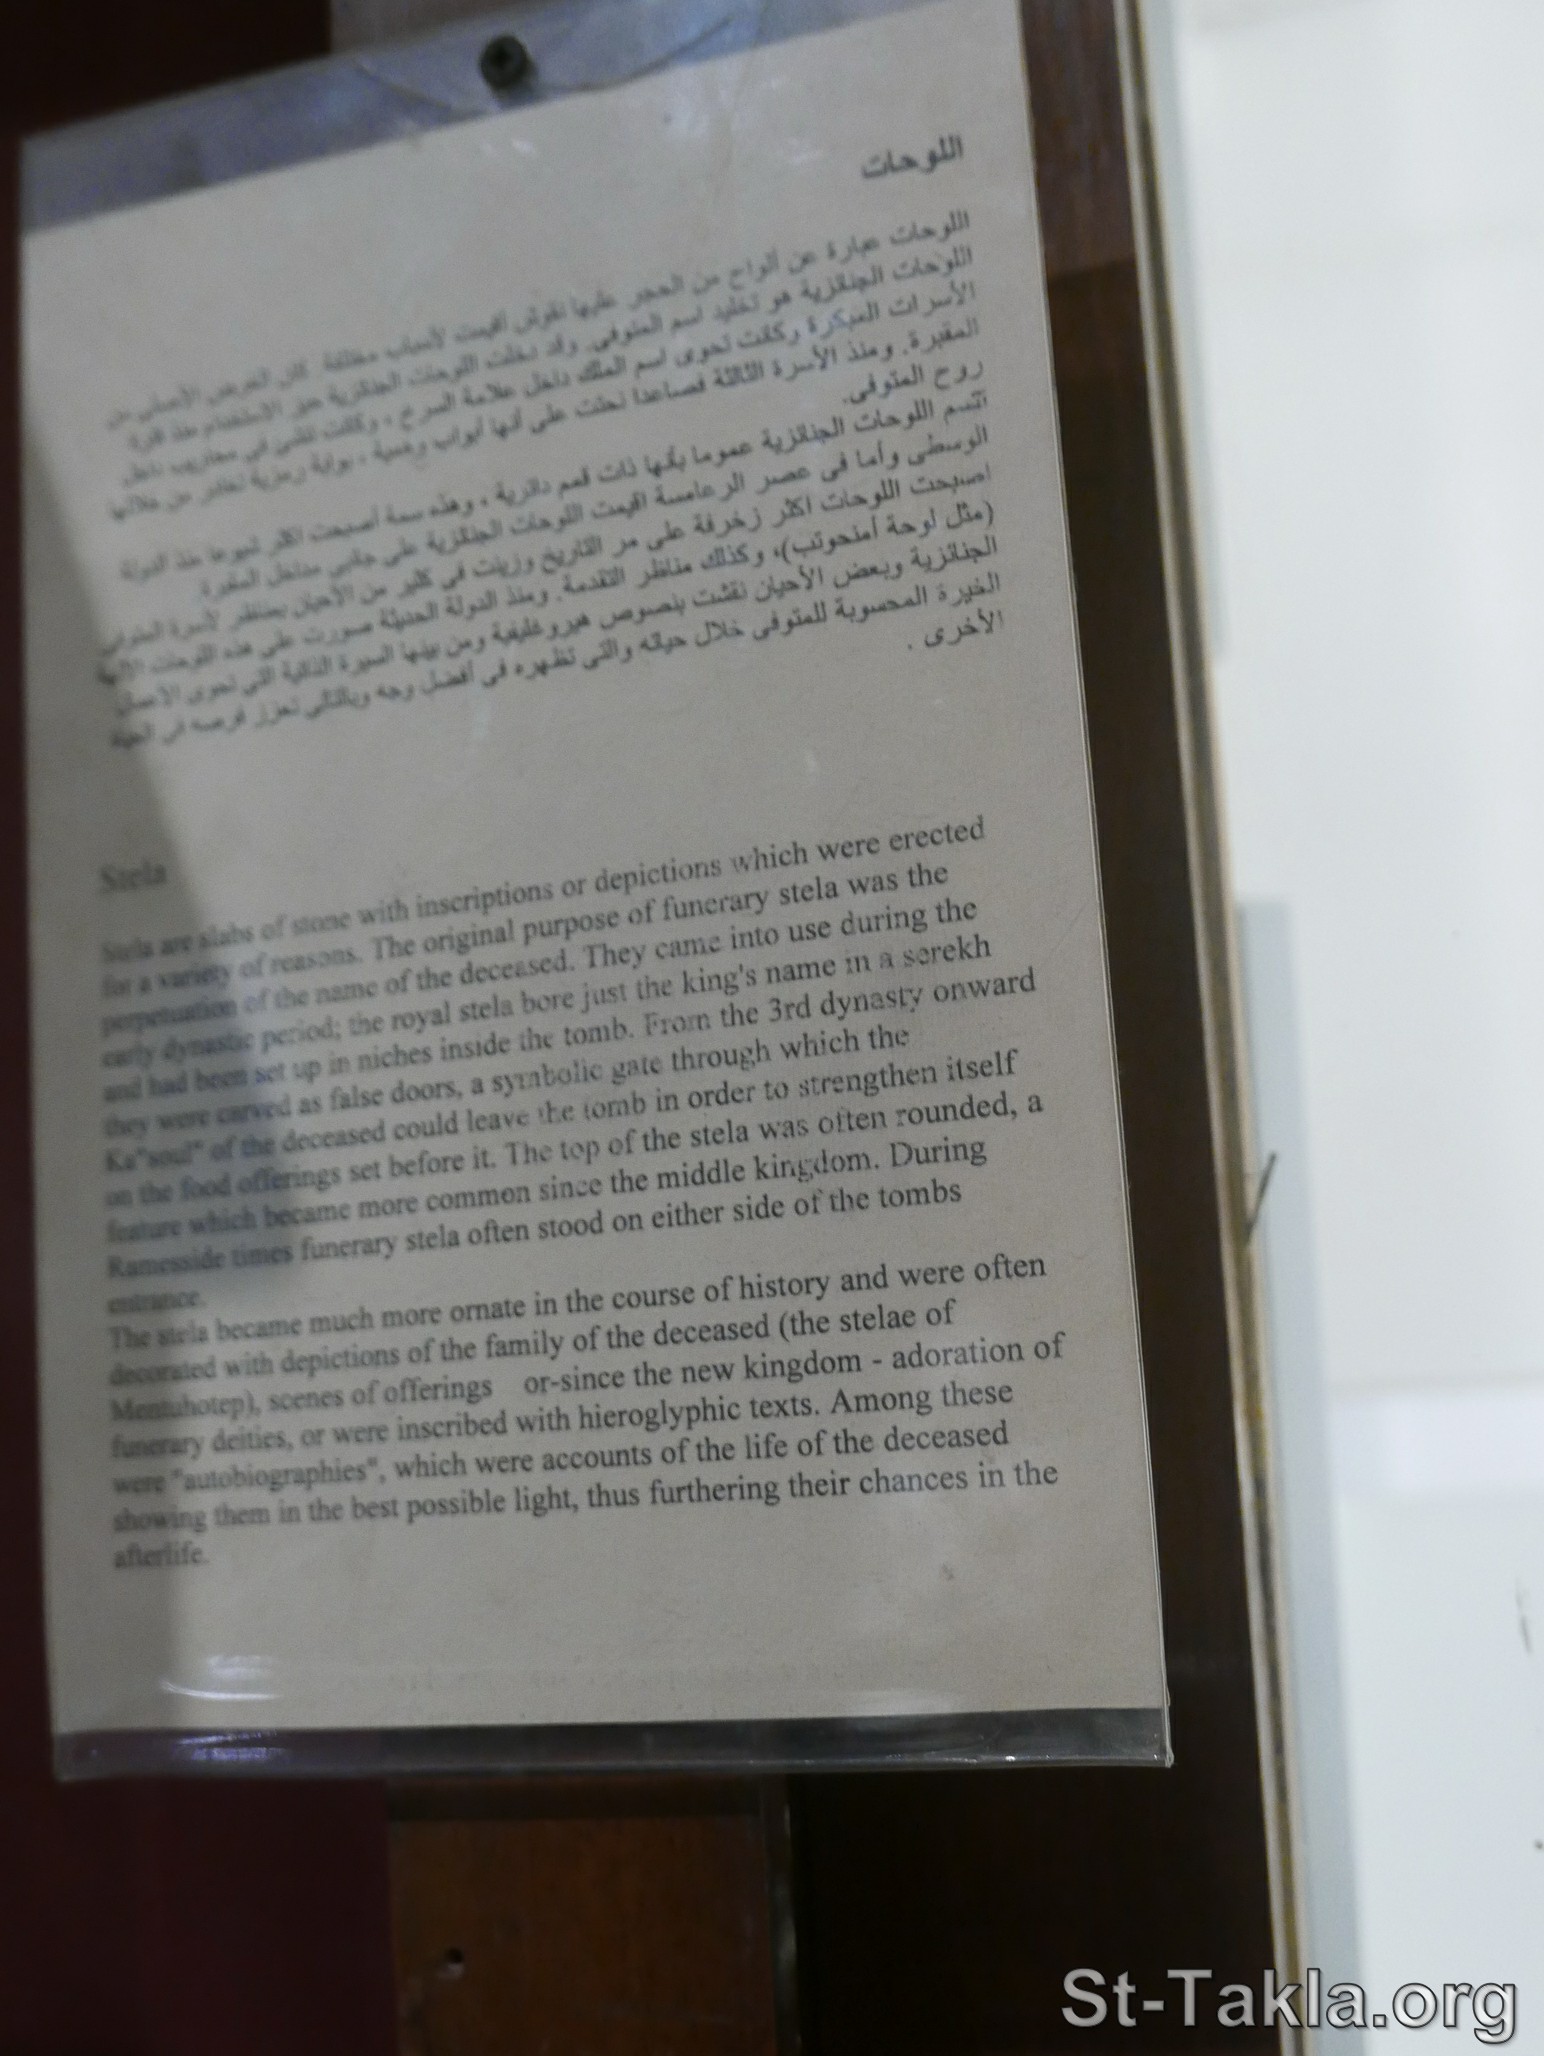 اللوحات
اللوحات عبارة عن ألواح من الحجر عليها نقوش أقيمت لأسباب مختلفة كان الغرض الأصلي من
اللوحات الجنائزية هو تخليد اسم المتوفى. وقد دخلت اللوحات الجنائزية حيز الاستخدام منذ فترة
الأسرات المبكرة وكانت تحوى اسم الملك داخل علامة السرخ ، وكانت تنشئ في محاريب داخل
المقبرة. ومنذ الأسرة الثالثة فصاعدا نحتت على أنها أبواب وهمية ، بوابة رمزية تغادر من خلالها
روح المتوفى.
اللوحات الجنائزية عموما بأنها ذات قمم دائرية ، وهذه سمة أصبحت اكثر شيوعا منذ الدولة
الوسطى وأما فى عصر الرعامسة اقيمت اللوحات الجنائزية على جانبي مداخل المقبرة.
اصبحت اللوحات اكثر زخرفة على مر التاريخ وزينت في كثير من الأحيان بمناظر لأسرة المتوفى
(مثل لوحة أمنحوتب)، وكذلك مناظر التقدمة. ومنذ الدولة الحديثة صورت على هذه اللوحات الآلهة
الجنائزية وبعض الأحيان نقشت بنصوص هيروغليفية ومن بينها السيرة الذاتية التى تحوى الأعمال
الخيرة المحسوبة للمتوفى خلال حياته والتى تظهره فى أفضل وجه وبالتالى تعزز فرصه فى الحياة
الأخرى .
Stela
Stela are slabs of stone with inscriptions or depictions which were erected
for a variety of reasons. The original purpose of funerary stela was the
perpetuation of the name of the deceased. They came into use during the
early dynastic period; the royal stela bore just the king's name in a serekh
and had been set up in niches inside the tomb. From the 3rd dynasty onward
they were carved as false doors, a symbolic gate through which the
Ka"soul" of the deceased could leave the tomb in order to strengthen itself
on the food offerings set before it. The top of the stela was often rounded, a
feature which became more common since the middle kingdom. During
Ramesside times funerary stela often stood on either side of the tombs
entrance.
The stela became much more ornate in the course of history and were often
decorated with depictions of the family of the deceased (the stelae of
Mentuhotep), scenes of offerings or-since the new kingdom - adoration of
funerary deities, or were inscribed with hieroglyphic texts. Among these
were "autobiographies", which were accounts of the life of the deceased
showing them in the best possible light, thus furthering their chances in the
afterlife.
St-Takla.org